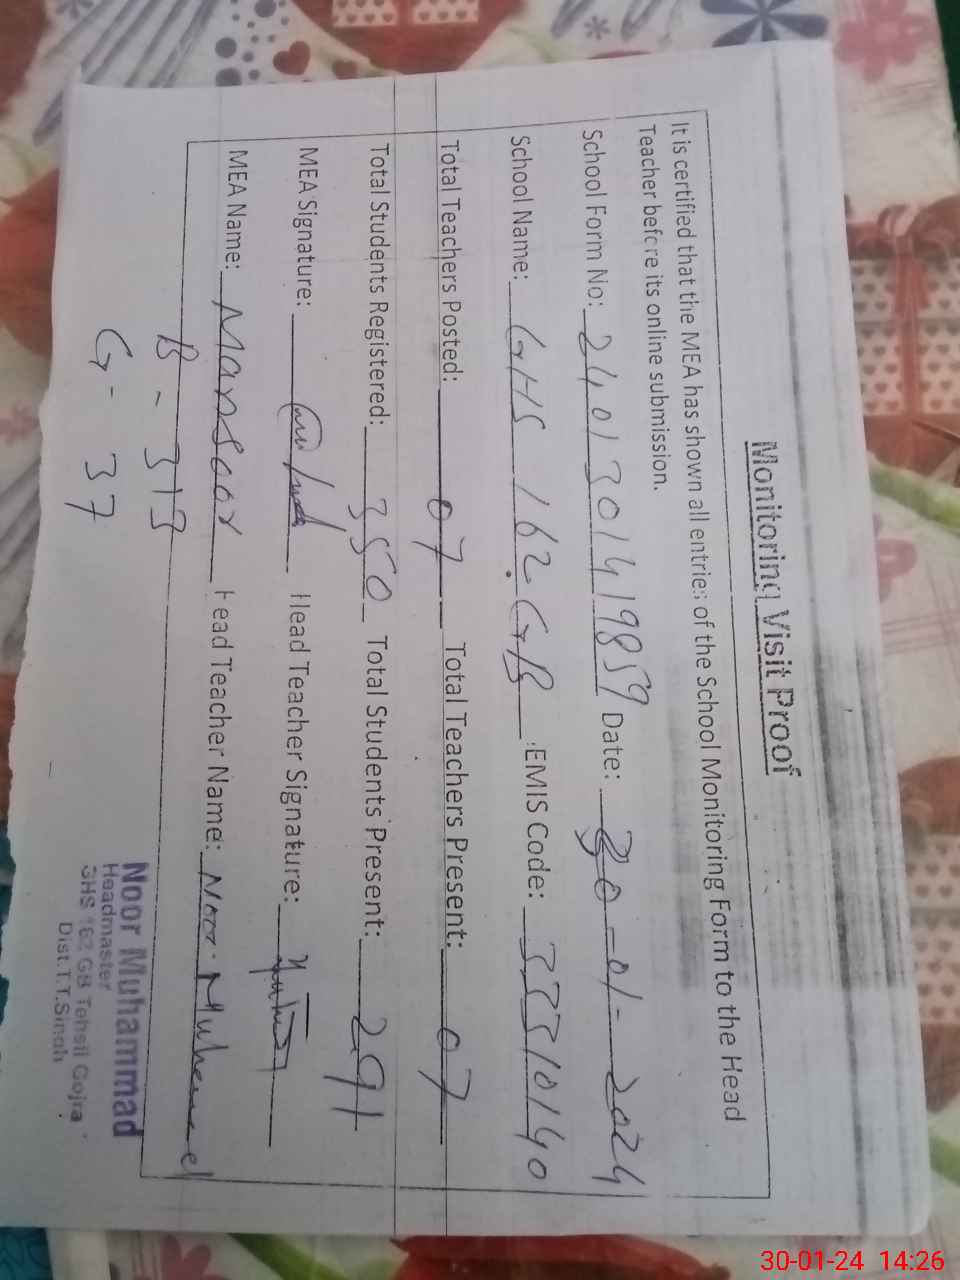 Monitoring Visit Proof
It is certified that the MEA has shown all entries of the School Monitoring Form to the Head
Teacher before its online submission.
School Form No: 2401301419859 Date: 30-01-2024
School Name: GHS 162 GB EMIS Code: 33310140
Total Teachers Posted: 07 Total Teachers Present: 07
Total Students Registered: 350 Total Students Present: 291
MEA Signature: Head Teacher Signature:
MEA Name: Mansoor Head Teacher Name: Noor Muhammad
B - 313
G - 37
Noor Muhammad
Headmaster
GHS 162 GB Tehsil Gojra
Dist.T.T.Singh
30-01-24 14:26